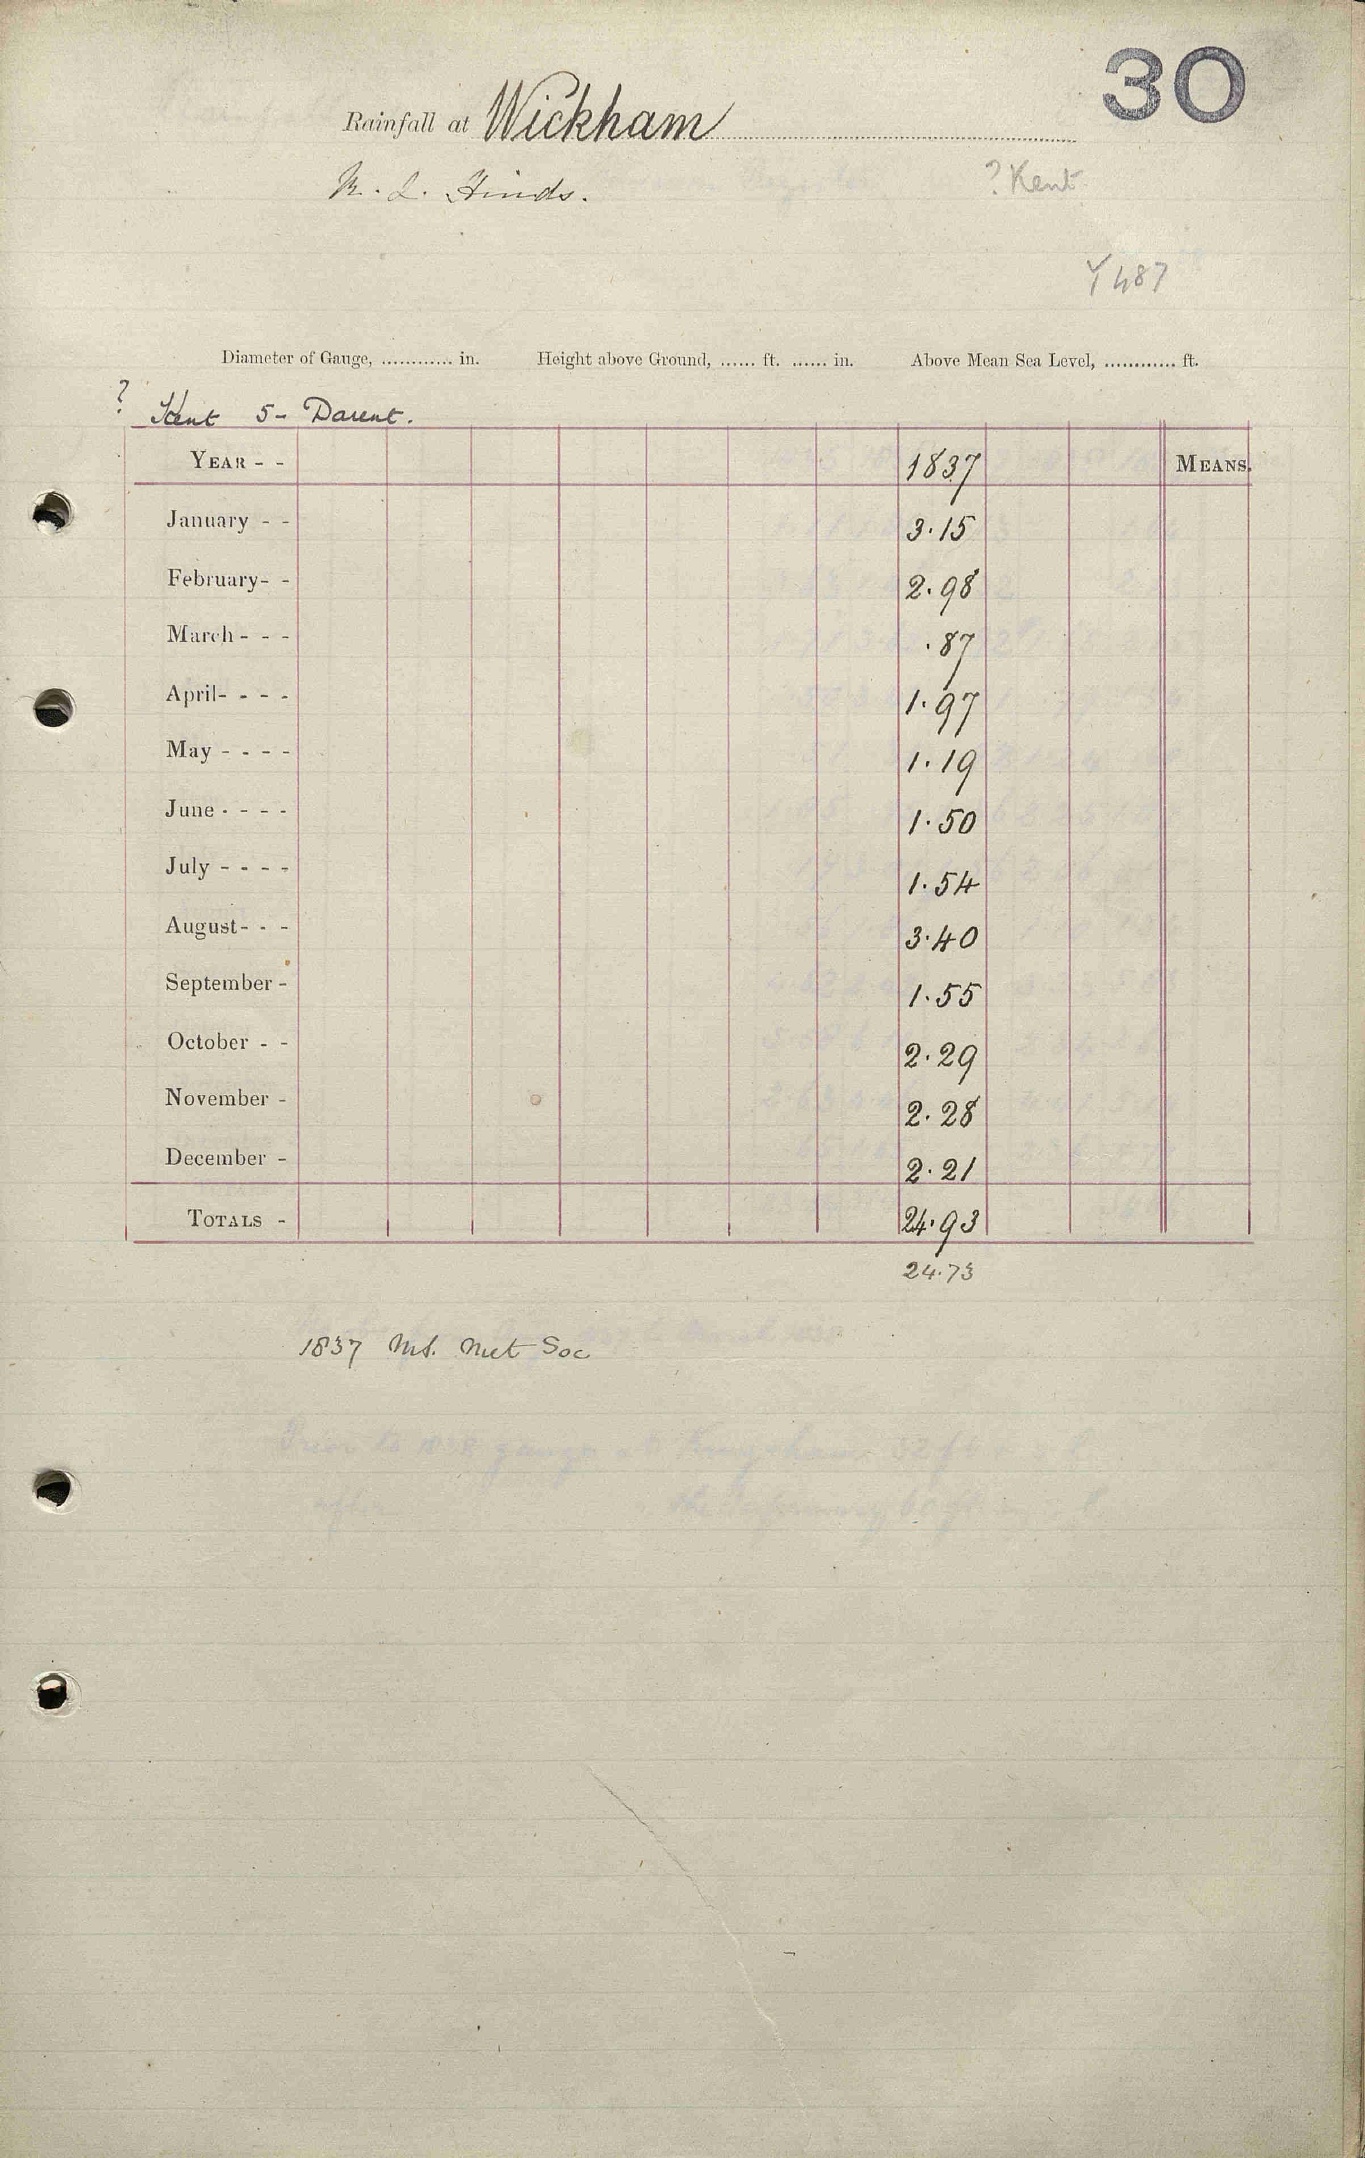 30
Rainfall at Wickham
M. L. Hinds.
? Kent
Y487
Diameter of Gauge, ............ in. Height above Ground, ...... ft. ...... in. Above Mean Sea Level, ............ ft.
? Kent 5- Darent.
YEAR - - 1837 MEANS.
January - - 3.15
February - - 2.98
March - - - .87
April - - - - 1.97
May - - - - 1.19
June - - - - 1.50
July - - - - 1.54
August - - - 3.40
September - 1.55
October - - 2.29
November - 2.28
December - 2.21
TOTALS - 24.93
24.73
1837 MS. Met Soc